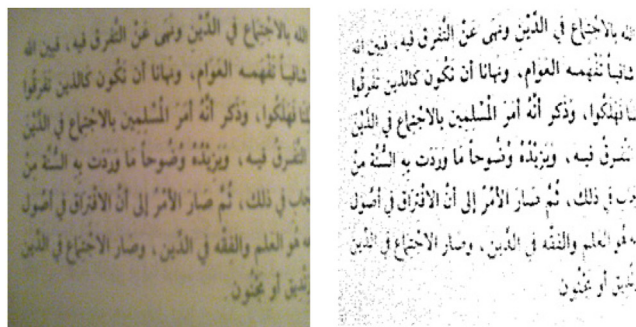 الله بالاجْتِماع في الدِّيْن ونَهَى عَنْ التَّفرق فيه، فبين الله
شافياً تَفْهَمه العَوَام، ونهانا أن نكُون كالذين تَفرقُوا
فهَلَكُوا، وذَكر أنَّهُ أمَرَ الْمُسْلِمِين بالاجْتِماع في الدِّيْن
التَّفرقْ فيه، وَيَزِيْدُهُ وُضُوحاً مَا وَرَدَتْ بِهِ السُّنَّة مِنْ
في ذلك، ثُمَّ صَارَ الأمْرُ إلى أنَّ الافْتِرَاق في أصُول
هُو العِلم والفِقْه في الدِّين، وصَار الاجْتِماع في الدِّين
أو مَجْنُون
الله بالاجْتِماع في الدِّيْن ونَهَى عَنْ التَّفرق فيه، فبين الله
شافياً تَفْهَمه العَوَام، ونهانا أن نكُون كالذين تَفرقُوا
فهَلَكُوا، وذَكر أنَّهُ أمَرَ الْمُسْلِمِين بالاجْتِماع في الدِّيْن
التَّفرقْ فيه، وَيَزِيْدُهُ وُضُوحاً مَا وَرَدَتْ بِهِ السُّنَّة مِنْ
في ذلك، ثُمَّ صَارَ الأمْرُ إلى أنَّ الافْتِرَاق في أصُول
هُو العِلم والفِقْه في الدِّين، وصَار الاجْتِماع في الدِّين
أو مَجْنُون